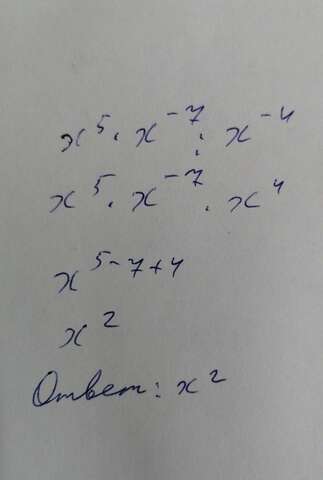 x⁵ · x⁻⁷ : x⁻⁴
x⁵ · x⁻⁷ · x⁴
x⁵⁻⁷⁺⁴
x²
Ответ: x²